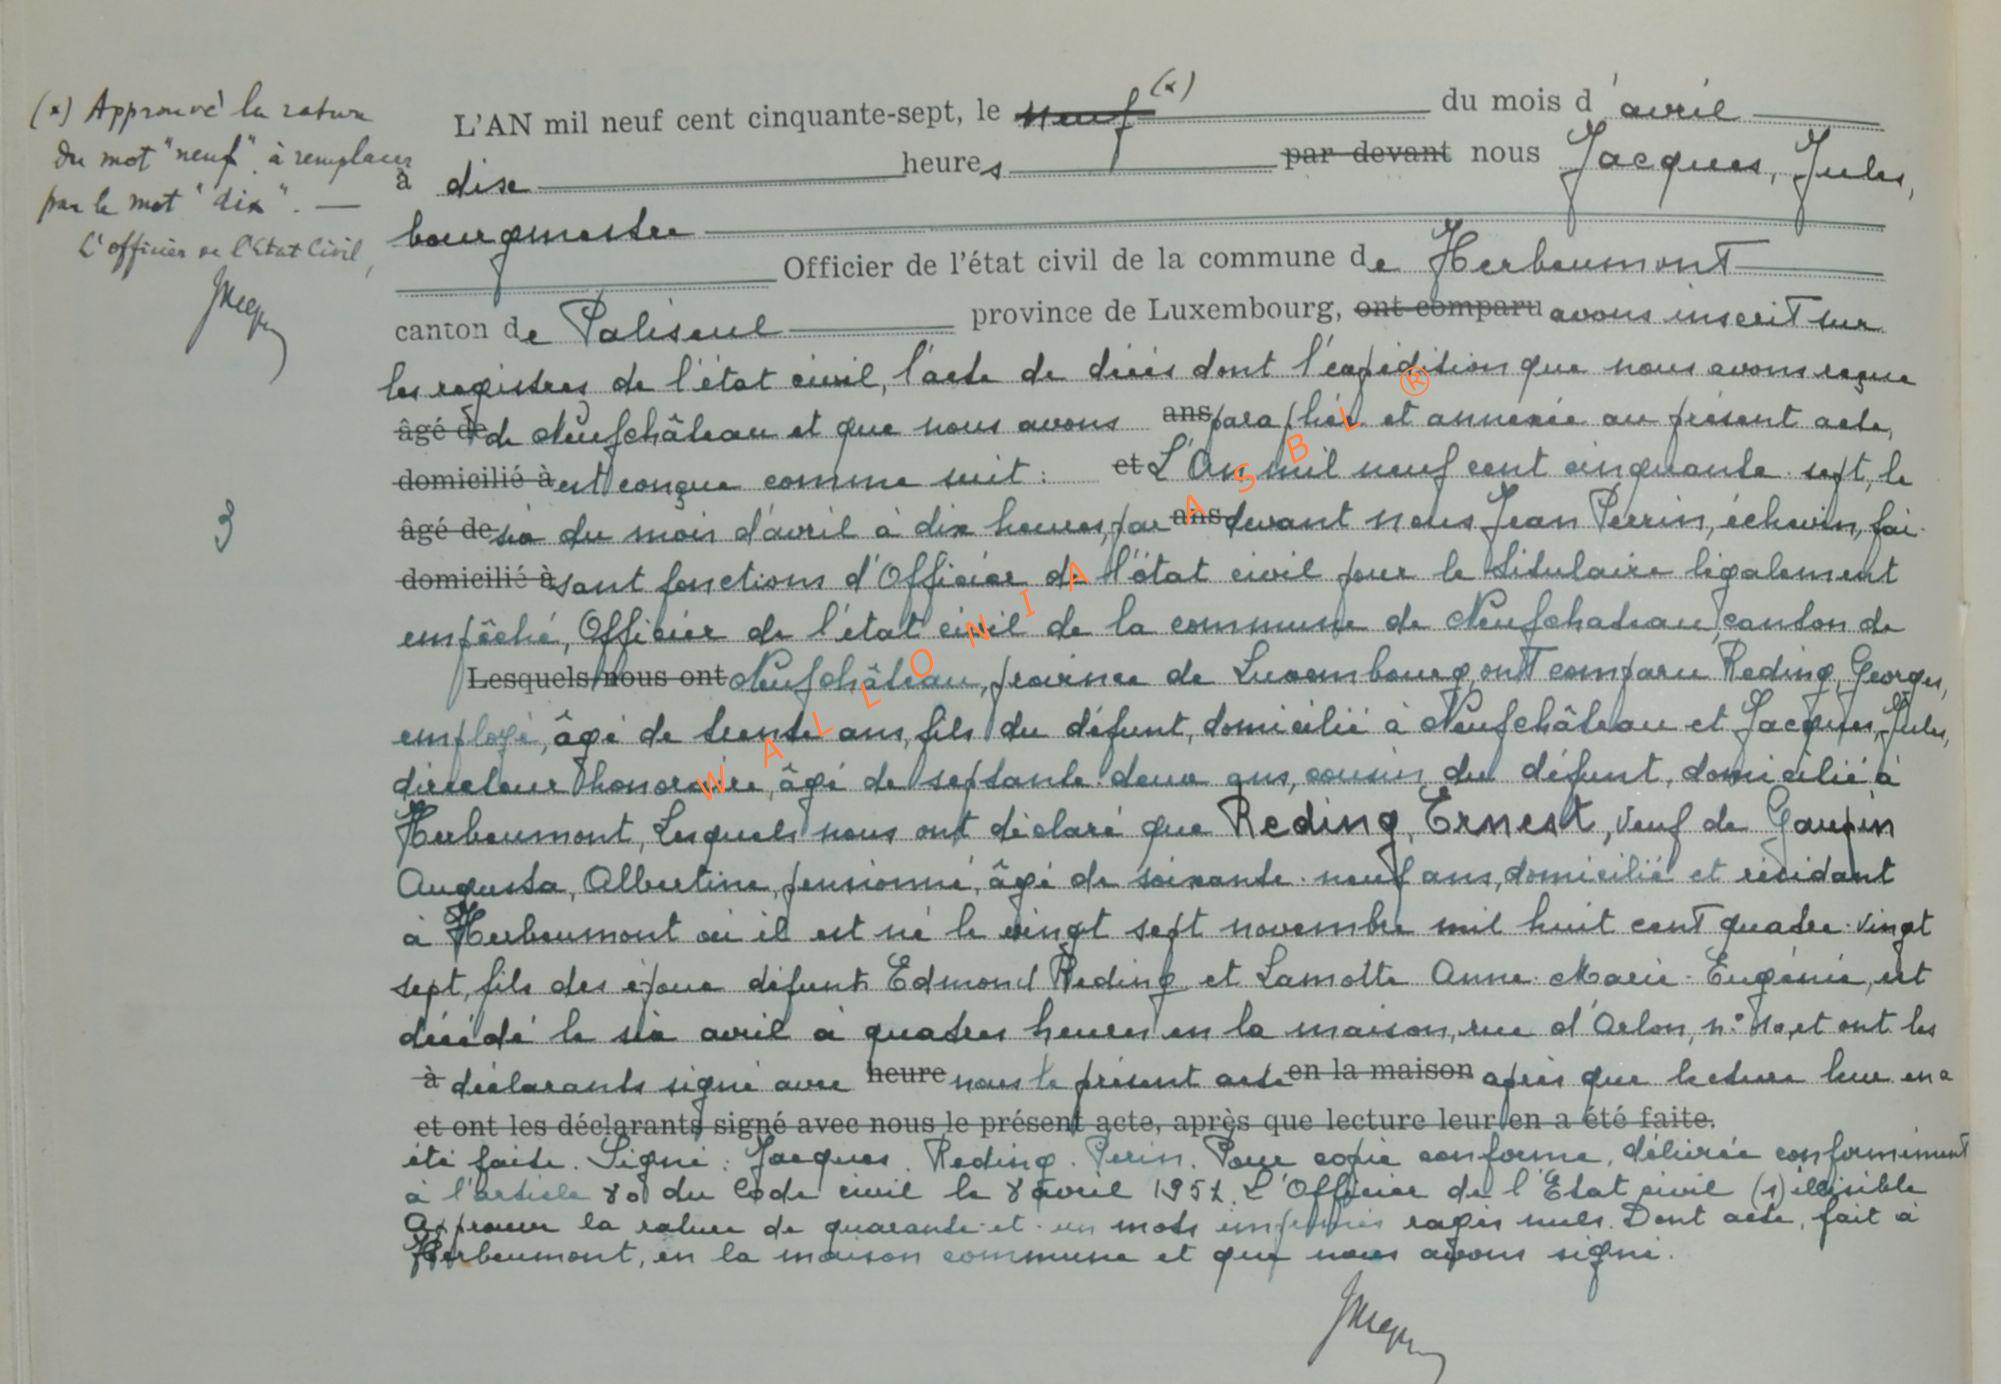 (x) Approuvé la rature
du mot "neuf" à remplacer
par le mot "dix". —
L'officier de l'Etat Civil,
3
L'AN mil neuf cent cinquante-sept, le neuf (x) du mois d'avril
à dix heures par devant nous Jacques, Jules,
bourgmestre
Officier de l'état civil de la commune de Herbeumont
canton de Paliseul province de Luxembourg, ont comparu avons inscrit sur
les registres de l'état civil, l'acte de décès dont l'expédition que nous avons reçue
âgé de de Neufchâteau et que nous avons ans paraphée et annexée au présent acte,
domicilié à est conçue comme suit : et L'An mil neuf cent cinquante-sept, le
âgé de six du mois d'avril à dix heures, par ans devant nous Jean Perrin, échevin, fai-
domicilié à sant fonctions d'Officier de l'état civil pour le titulaire légalement
empêché, Officier de l'état civil de la commune de Neufchateau, canton de
Lesquels nous ont Neufchâteau, province de Luxembourg, ont comparu Reding, Georges,
employé, âgé de trente ans, fils du défunt, domicilié à Neufchâteau et Jacques, Jules,
directeur honoraire, âgé de septante-deux ans, cousin du défunt, domicilié à
Herbeumont, Lesquels nous ont déclaré que Reding, Ernest, veuf de Gaupin
Augusta, Albertine, pensionné, âgé de soixante-neuf ans, domicilié et résidant
à Herbeumont où il est né le vingt sept novembre mil huit cent quatre-vingt
sept, fils des époux défunts Edmond Reding et Lamotte Anne-Marie-Eugénie, est
décédé le six avril à quatre heures en la maison, rue d'Arlon, n° et ont les
à déclarants signé avec heure nous le présent acte en la maison après que lecture leur en a
et ont les déclarants signé avec nous le présent acte, après que lecture leur en a été faite.
été faite. Signé : Jacques. Reding. Perin. Pour copie conforme, délivrée conformément
à l'article 80 du Code civil le 8 avril 1957. L'Officier de l'Etat civil (s) illisible
Approuvé la rature de quarante-et-un mots imprimés rayés nuls. Dont acte, fait à
Herbeumont, en la maison commune et que nous avons signé.
WALLONIA ASBL ®